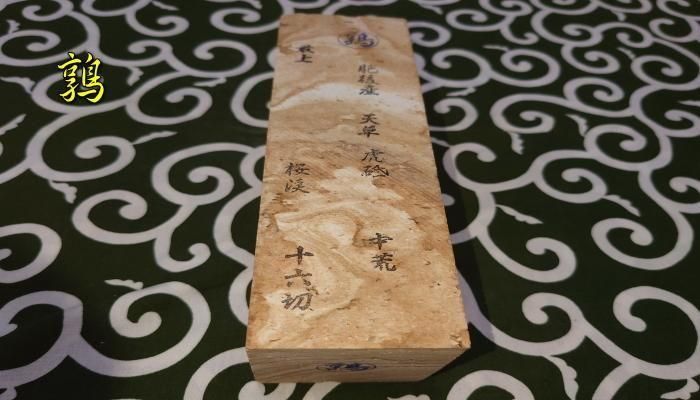 鶉
鶉
最上
肥後産 天草 虎砥 中荒
桜渓 十六切
鶉